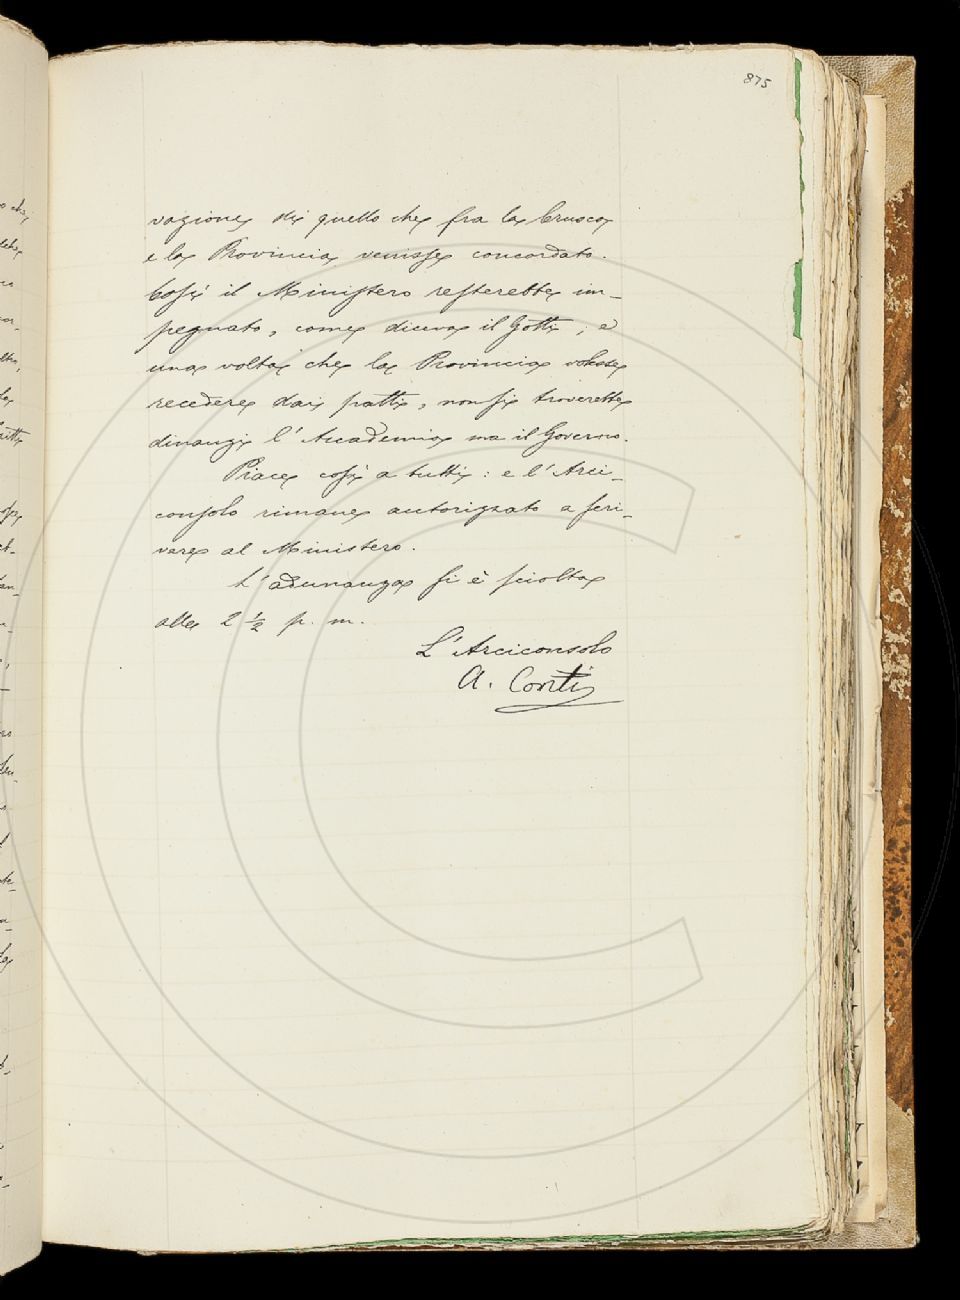 875
vazione di quello che fra la Crusca
e la Provincia venisse concordato.
Così il Ministero resterebbe im-
pegnato, come diceva il Gotti; e
una volta che la Provincia volesse
recedere dai patti, non si troverebbe
dinanzi l'Accademia ma il Governo.
Piace così a tutti: e l'Arci-
consolo rimane autorizzato a scri-
vere al Ministero.
L'adunanza si è sciolta
alle 2 ½ p. m.
L'Arciconsolo
A. Conti